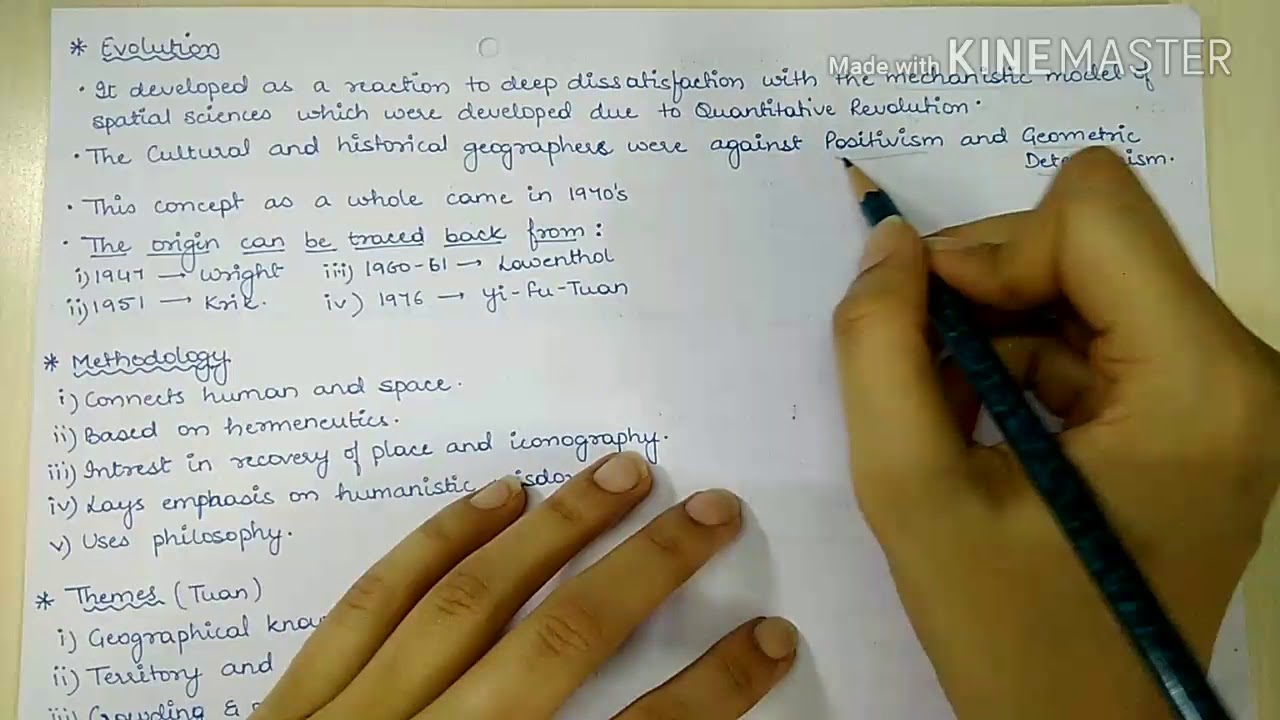 Made with KINEMASTER
* Evolution
· It developed as a reaction to deep dissatisfaction with the mechanistic model of
spatial sciences which were developed due to Quantitative Revolution.
· The Cultural and historical geographers were against Positivism and Geometric
· This concept as a whole came in 1970's
· The origin can be traced back from:
i) 1947 → Wright iii) 1960-61 → Lowenthol
ii) 1951 → Krik. iv) 1976 → Yi-Fu-Tuan
* Methodology
i) Connects human and space.
ii) Based on hermeneutics.
iii) Intrest in recovery of place and iconography.
iv) Lays emphasis on humanistic
v) Uses philosophy.
* Themes (Tuan)
i) Geographical
ii) Territory and
iii) Crowding &